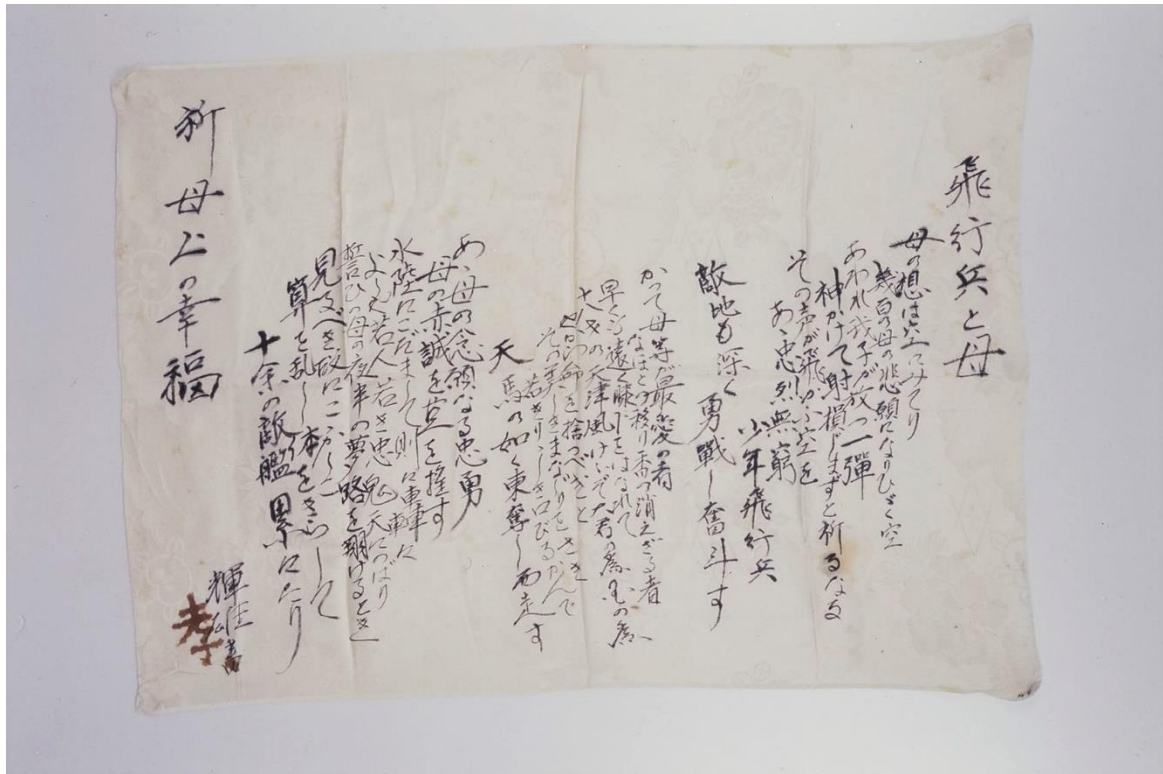 飛行兵と母
母の想は空にみてり
幾百の母の悲願になりひゞく空
あわれ我子が放つ一彈
神かけて射損じまずと祈るなる
その声が飛かふ空を
あゝ忠烈無窮
少年飛行兵
敵地も深く勇戰し奮斗す
かつて母等が最愛の者
なほとの移り香の消えざる者
早くも遠く膝下をはなれて
の天津風けふぞ大君の為国の為
を捨つべきと
その美しきまなじりをさき
若きりゝしき口びるかんで
天馬の如く東奪し西走す
あゝ母の念願なる忠勇
母の赤誠を空を推す
水陸にこだまして則ち轟轟
若人若き忠鬼天につばり
誓ひの母の夜半の夢路を翔けるとき
見るべき敵にこゝかしこ
算を乱し本をきらして
十余の敵艦累々たり
祈母上の幸福
輝雄書
孝